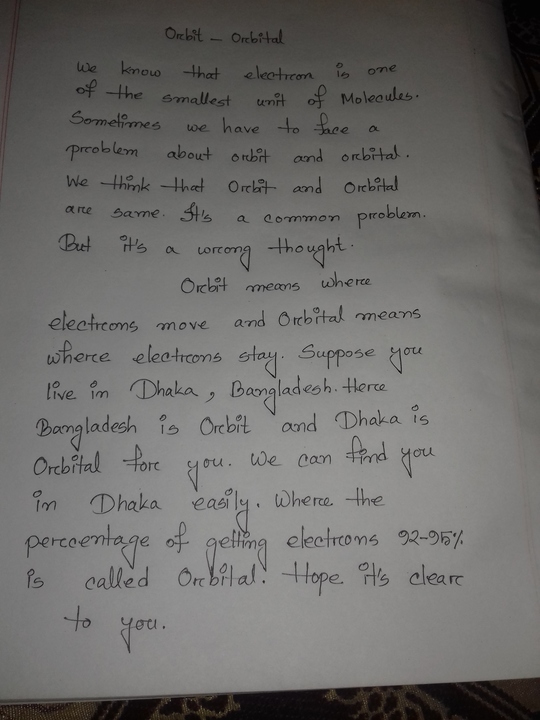 Orbit – Orbital
We know that electron is one
of the smallest unit of Molecules.
Sometimes we have to face a
problem about orbit and orbital.
We think that Orbit and Orbital
are same. It's a common problem.
But it's a wrong thought.
Orbit means where
electrons move and Orbital means
where electrons stay. Suppose you
live in Dhaka, Bangladesh. Here
Bangladesh is Orbit and Dhaka is
Orbital for you. We can find you
in Dhaka easily. Where the
percentage of getting electrons 92-95%
is called Orbital. Hope it's clear
to you.